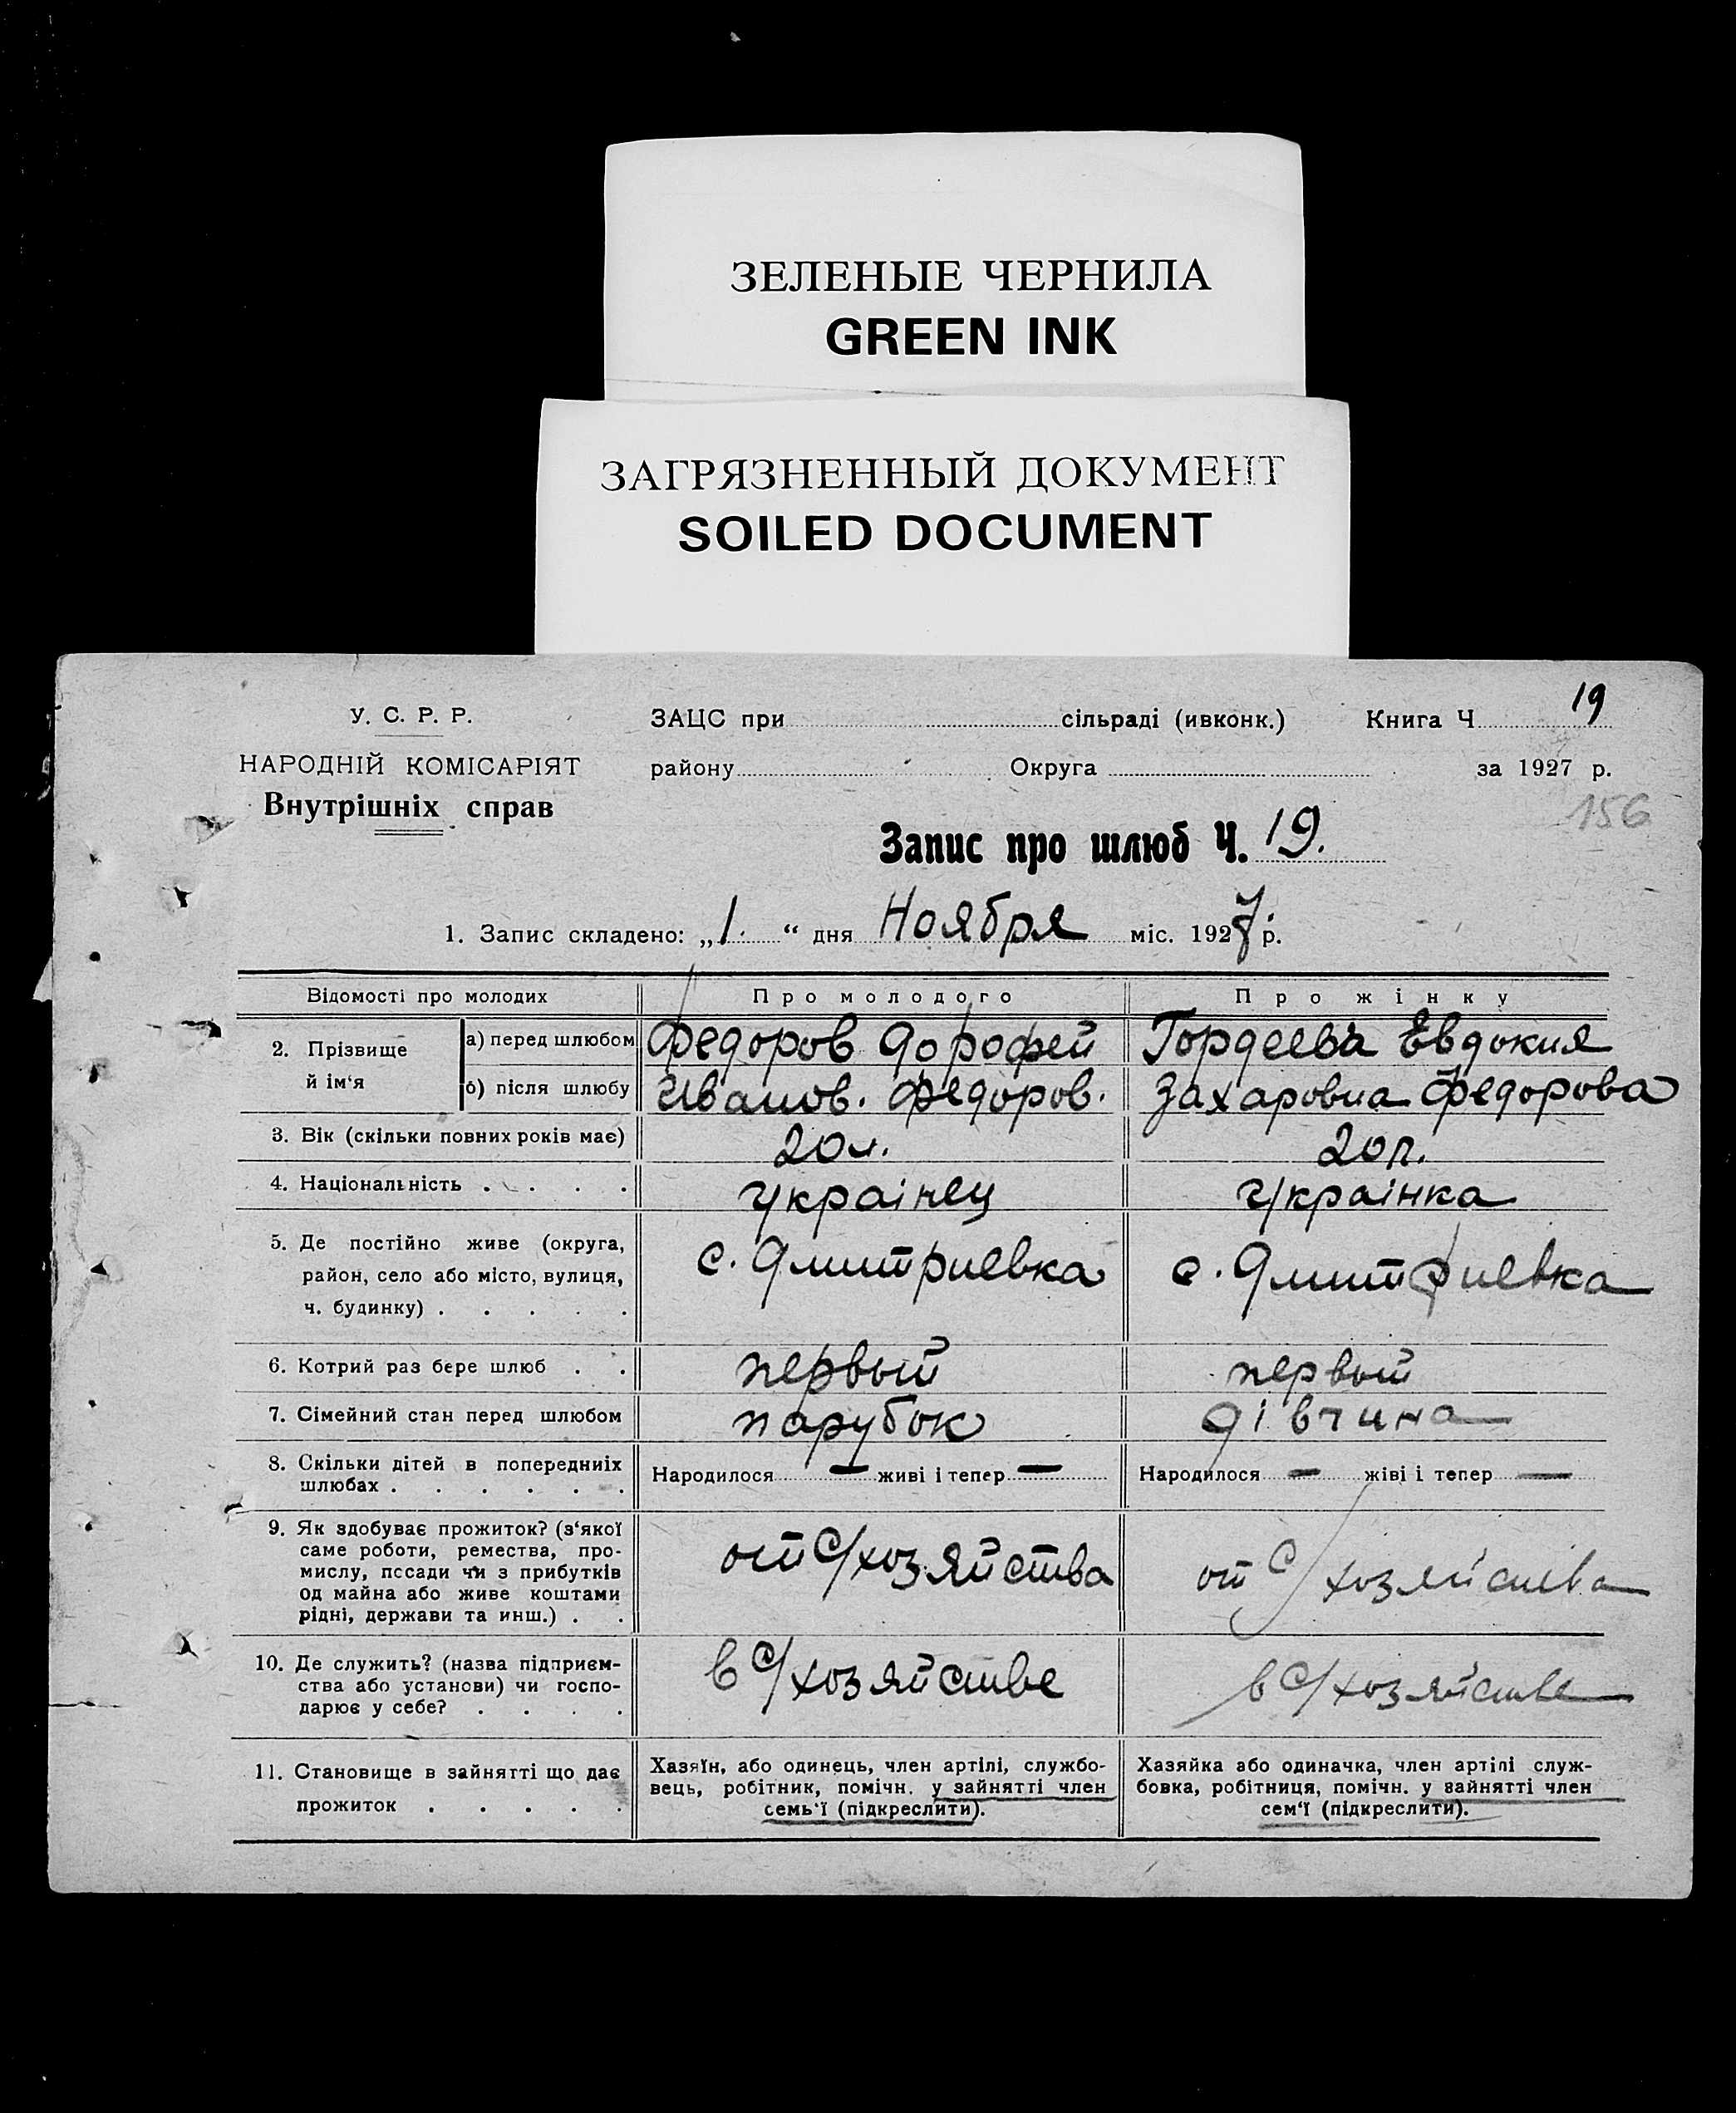 ЗЕЛЕНЫЕ ЧЕРНИЛА
GREEN INK
ЗАГРЯЗНЕННЫЙ ДОКУМЕНТ
SOILED DOCUMENT
У. С. Р. Р.
НАРОДНІЙ КОМІСАРІЯТ
Внутрішніх справ
ЗАЦС при сільраді (ивконк.) Книга Ч 19
району Округа за 1927 р.
156
Запис про шлюб Ч. 19.
1. Запис складено: „1.“ дня Ноября міс. 1927 р.
Відомості про молодих Про молодого Про жінку
2. Прізвище й ім'я
а) перед шлюбом Федоров Дорофей Гордеева Евдокия
б) після шлюбу Иванов. Федоров. Захаровна Федорова
3. Вік (скільки повних років має) 20 л. 20 л.
4. Національність . . . . українец українка
5. Де постійно живе (округа,
район, село або місто, вулиця,
ч. будинку) . . . . .
с. Дмитриевка с. Дмитриевка
6. Котрий раз бере шлюб . . первый первый
7. Сімейний стан перед шлюбом парубок дівчина
8. Скільки дітей в попередниіх
шлюбах . . . . . .
Народилося — живі і тепер — Народилося — жіві і тепер —
9. Як здобуває прожиток? (з'якої
саме роботи, ремества, про-
мислу, пссади чи з прибутків
од майна або живе коштами
рідні, держави та инш.) . .
от с/хозяйства от с/хозяйства
10. Де служить? (назва підприєм-
ства або установи) чи госпо-
дарює у себе? . . . .
в с/хозяйстве в с/хозяйстве
11. Становище в зайнятті що дає
прожиток . . . . .
Хазяїн, або одинець, член артілі, службо-
вець, робітник, помічн. у зайнятті член
семь'ї (підкреслити).
Хазяйка або одиначка, член артілі служ-
бовка, робітниця, помічн. у зайнятті член
сем'ї (підкреслити).